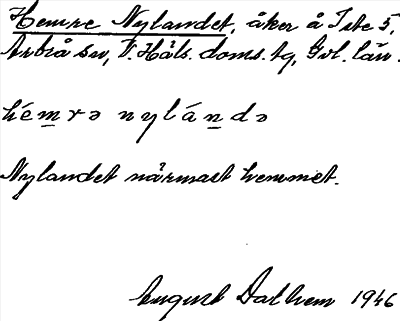 Hemre Nylandet, åker å Iste 5,
Arbrå sn, V. Häls. doms. tg, Gvl. län.
hémrə nylándə
Nylandet närmast hemmet.
August Dalhem 1946